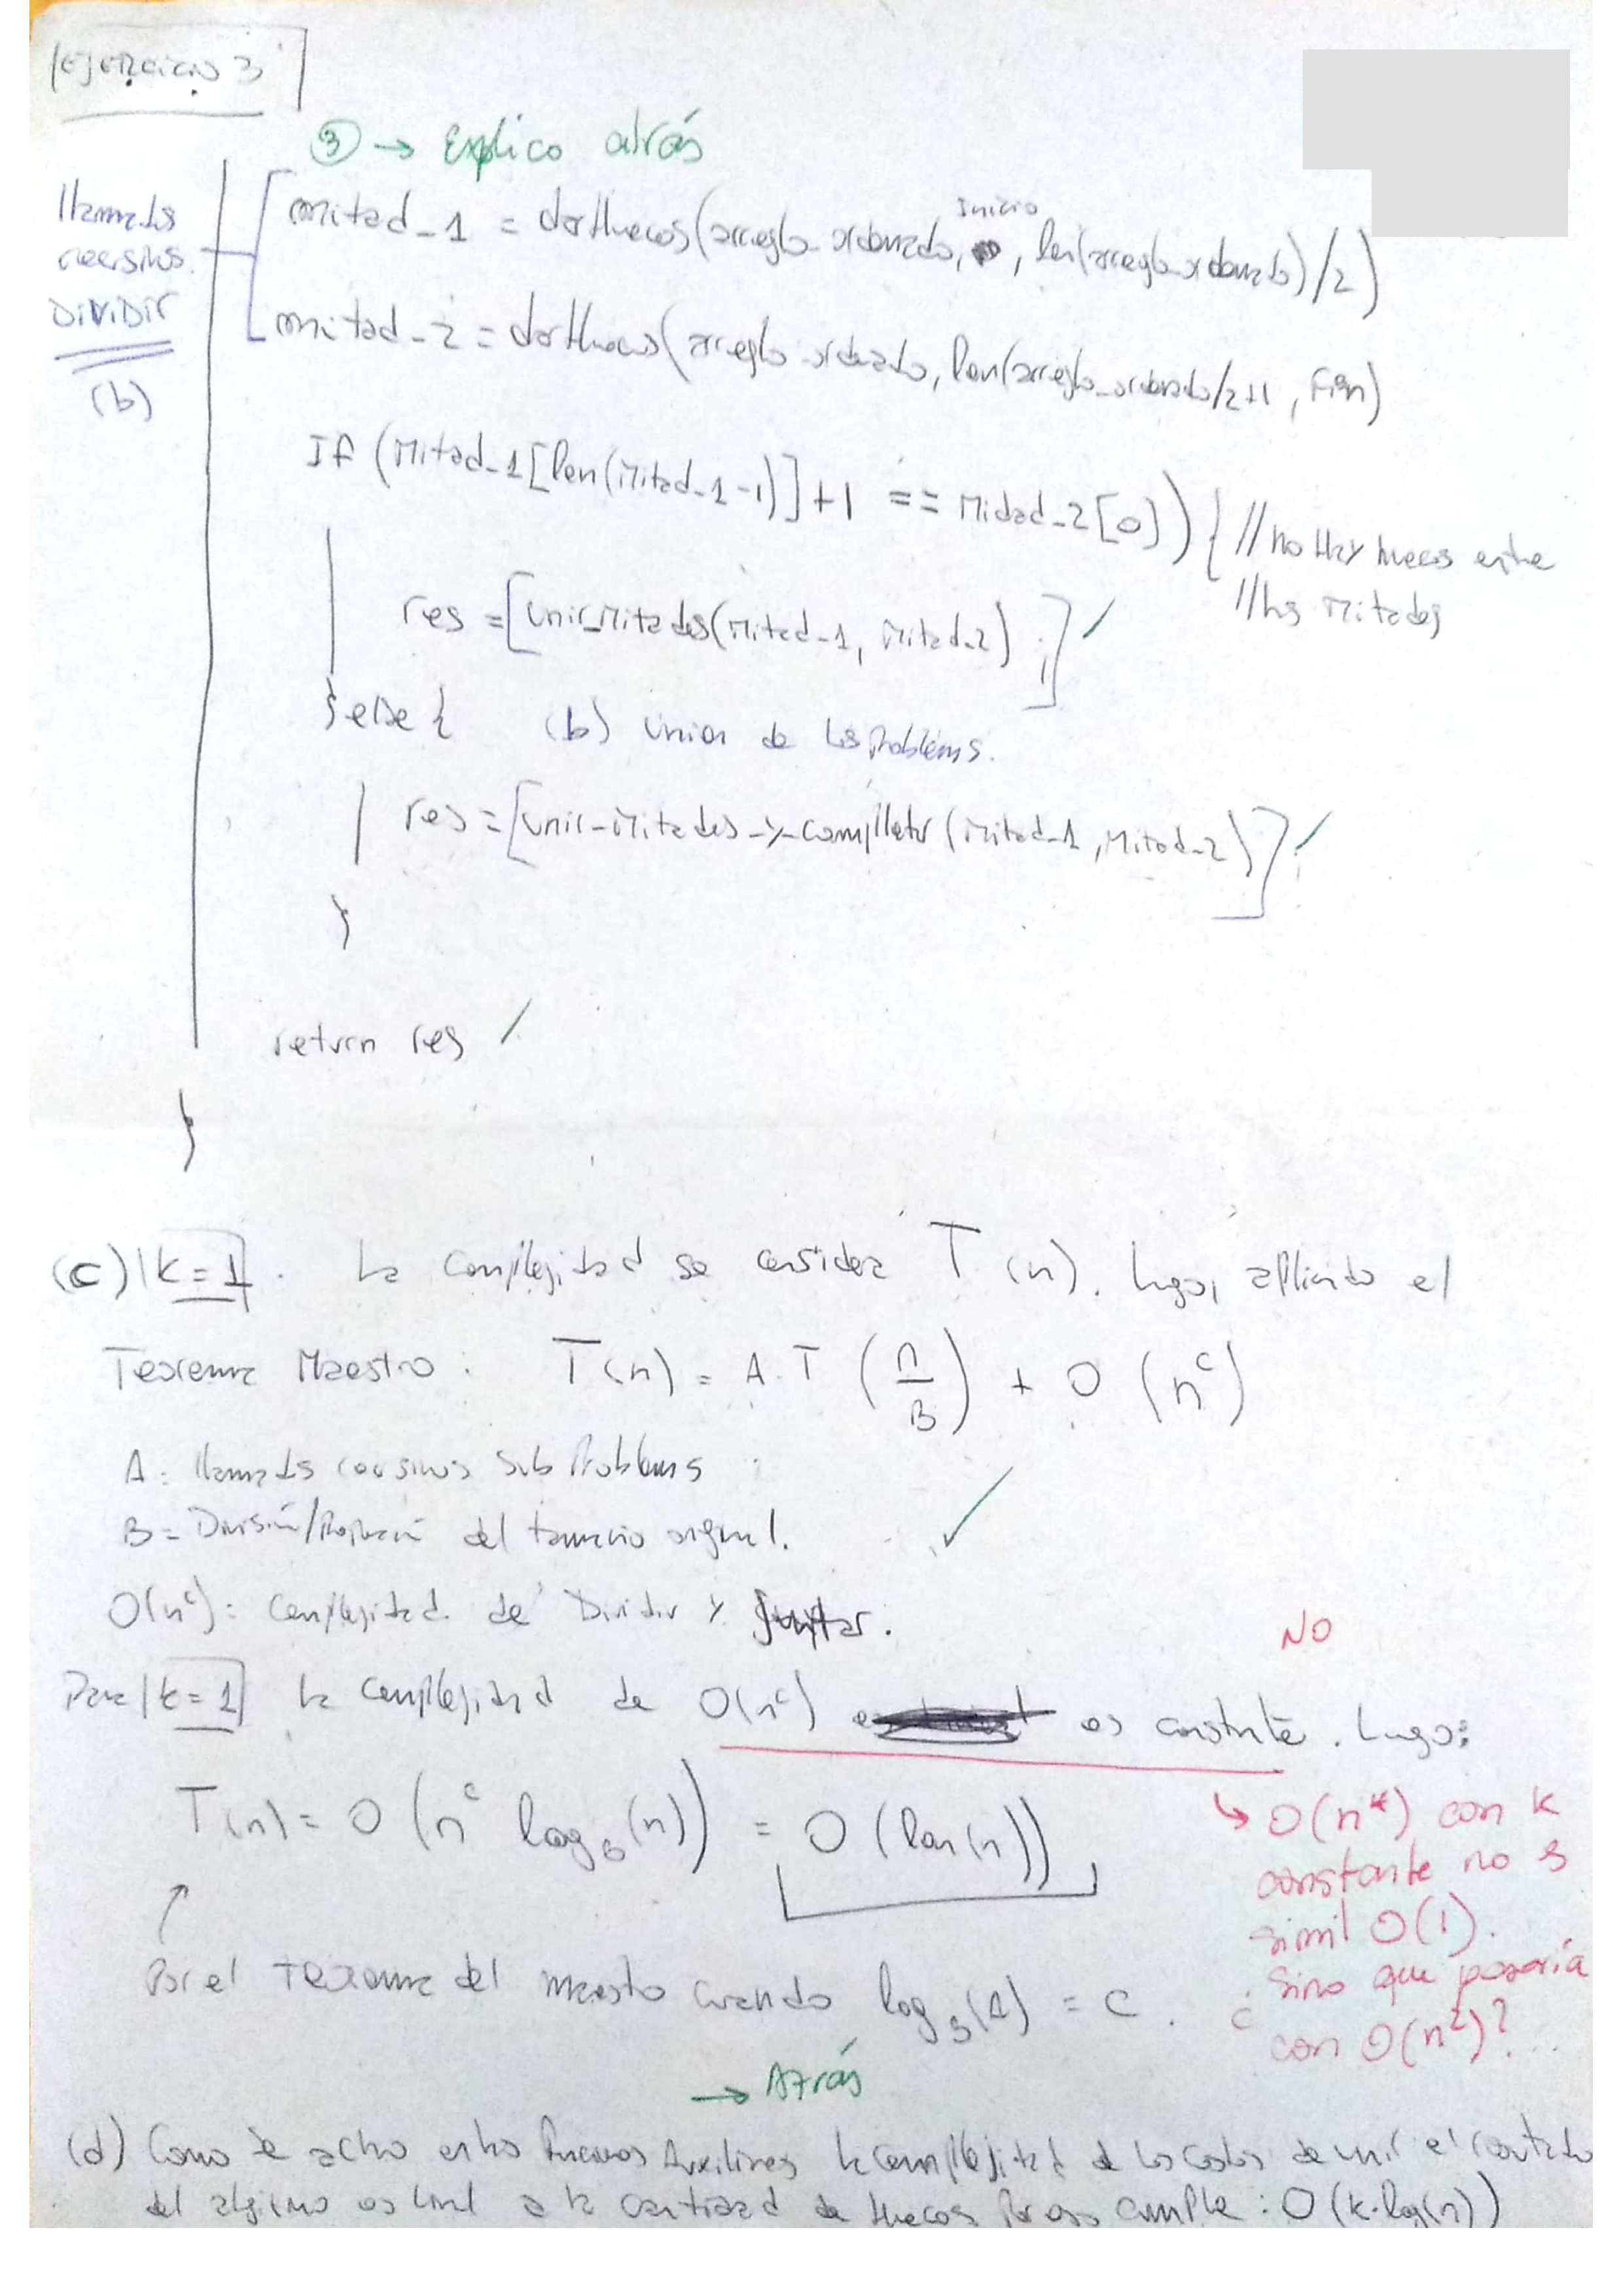 Ejercicio 3
③ → Explico atrás
llamados
recursivos.
DIVIDIR
(b)
mitad_1 = darHuecos(arreglo_ordenado, inicio, len(arreglo_ordenado)/2)
mitad_2 = darHuecos(arreglo_ordenado, len(arreglo_ordenado/2+1, Fin)
If (Mitad_1[len(Mitad_1-1)]+1 == Mitad_2[0]) { // No Hay huecos entre
// las Mitades
res = [unir_Mitades(Mitad_1, Mitad_2) ;]
} else { (b) union de los problems.
res = [unir_Mitades_y_completar (Mitad_1, Mitad_2)];
}
return res
}
(c) k=1. La complejidad se considera T(n). Luego, aplicando el
Teorema Maestro: T(n) = A.T (n/B) + O (n^c)
A = llamados recursivos subproblems
B = División/ del tamaño original.
O(n^c): complejidad de Dividir y Juntar.
NO
Para k=1 la complejidad de O(n^c) es constante. Luego:
T(n) = O (n^c log_b(n)) = O (log(n))
↳ O(n^k) con k
constante no es
simil O(1).
¿Sino que pasaría
con O(n²)?...
↑
Por el Teorema del maestro cuando log_B(A) = c.
→ Atrás
(d) Como se aclaro en las Auxiliares la complejidad de los costos de unir el
del algoritmo es lineal a la cantidad de Huecos por eso cumple: O(k.log(n))